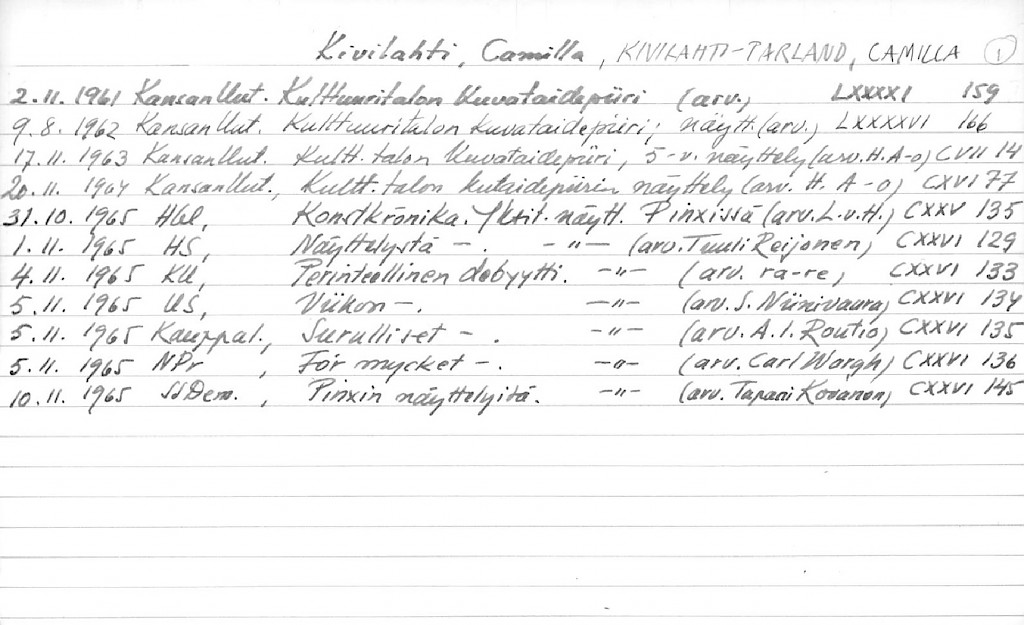 Kivilahti, Camilla, KIVILAHTI-TARLAND, CAMILLA 1
2.11. 1961 Kansan Uut. Kulttuuritalon Kuvataidepiiri (arv.) LXXXXI 159
9.8. 1962 Kansan Uut. Kulttuuritalon kuvataidepiiri; näytt. (arv.) LXXXXVI 166
17.11. 1963 Kansan Uut. Kultt.talon Kuvataidepiiri, 5-v. näyttely (arv. H.A-o) CVII 14
20.11. 1964 Kansan Uut., Kultt.talon kutaidepiirin näyttely (arv. H. A-o) CXVI 77
31.10. 1965 Hbl, Konstkrönika. Yksit. näytt. Pinxissä (arv. L.v.H.) CXXV 135
1.11. 1965 HS, Näyttelystä -. -"- (arv. Tuuli Reijonen) CXXVI 129
4.11. 1965 KU, Perinteellinen debyytti. -"- (arv. ra-re) CXXVI 133
5.11. 1965 US, Viikon -. -"- (arv. S. Niinivaara) CXXVI 134
5.11. 1965 Kauppal., Surulliset -. -"- (arv. A.I. Routio) CXXVI 135
5.11. 1965 NPr, För mycket -. -"- (arv. Carl Wargh) CXXVI 136
10.11. 1965 SDem., Pinxin näyttelyitä. -"- (arv. Tapani Kovanen) CXXVI 145